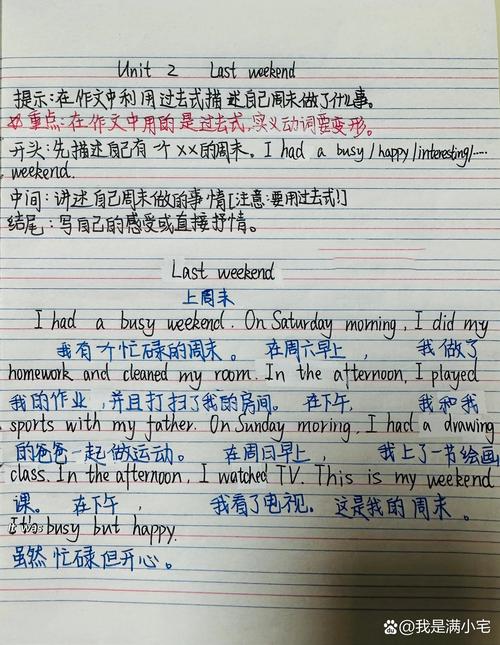 Unit 2 Last weekend
提示:在作文中利用过去式描述自己周末做了什么事。
重点:在作文中用的是过去式,实义动词要变形。
开头:先描述自己有一个××的周末。I had a busy/happy/interesting/.....
weekend.
中间:讲述自己周末做的事情[注意:要用过去式!]
结尾:写自己的感受或直接抒情。
Last weekend
上周末
I had a busy weekend. On Saturday morning, I did my
我有一个忙碌的周末。 在周六早上, 我做了
homework and cleaned my room. In the afternoon, I played
我的作业,并且打扫了我的房间。 在下午, 我和我
sports with my father. On Sunday moring, I had a drawing
的爸爸一起做运动。 在周日早上, 我上了一节绘画
class. In the afternoon, I watched TV. This is my weekend
课。 在下午, 我看了电视。 这是我的周末。
busy but happy.
虽然忙碌但开心。
@我是满小宅